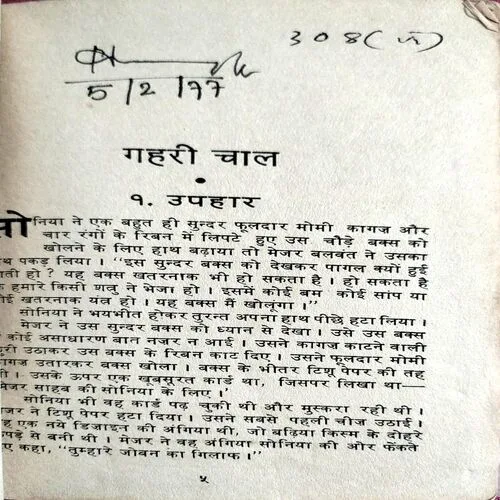 308(ज)
5/2/77
गहरी चाल
•
१. उपहार
सोनिया ने एक बहुत ही सुन्दर फूलदार मोमी कागज़ और
चार रंगों के रिबन में लिपटे हुए उस चौड़े बक्स को
खोलने के लिए हाथ बढ़ाया तो मेजर बलवंत ने उसका
थ पकड़ लिया। "इस सुन्दर बक्स को देखकर पागल क्यों हुई
ाती हो? यह बक्स खतरनाक भी हो सकता है। हो सकता है
हमारे किसी शत्रु ने भेजा हो। इसमें कोई बम कोई सांप या
ोई खतरनाक यंत्र हो। यह बक्स मैं खोलूंगा।"
सोनिया ने भयभीत होकर तुरन्त अपना हाथ पीछे हटा लिया।
मेजर ने उस सुन्दर बक्स को ध्यान से देखा। उसे उस बक्स
कोई असाधारण बात नजर न आई। उसने कागज काटने वाली
ुरी उठाकर उस बक्स के रिबन काट दिए। उसने फूलदार मोमी
ागज उतारकर बक्स खोला। बक्स के भीतर टिशू पेपर की तह
ी। उसके ऊपर एक खूबसूरत कार्ड था, जिसपर लिखा था—
मेजर साहब की सोनिया के लिए।'
सोनिया भी वह कार्ड पढ़ चुकी थी और मुस्करा रही थी।
जर ने टिशू पेपर हटा दिया। उसने सबसे पहली चीज उठाई।
ह एक नये डिजाइन की अंगिया थी, जो बढ़िया किस्म के दोहरे
पड़े से बनी थी। मेजर ने वह अंगिया सोनिया की ओर फेंकते
ए कहा, "तुम्हारे जोबन का गिलाफ।"
५